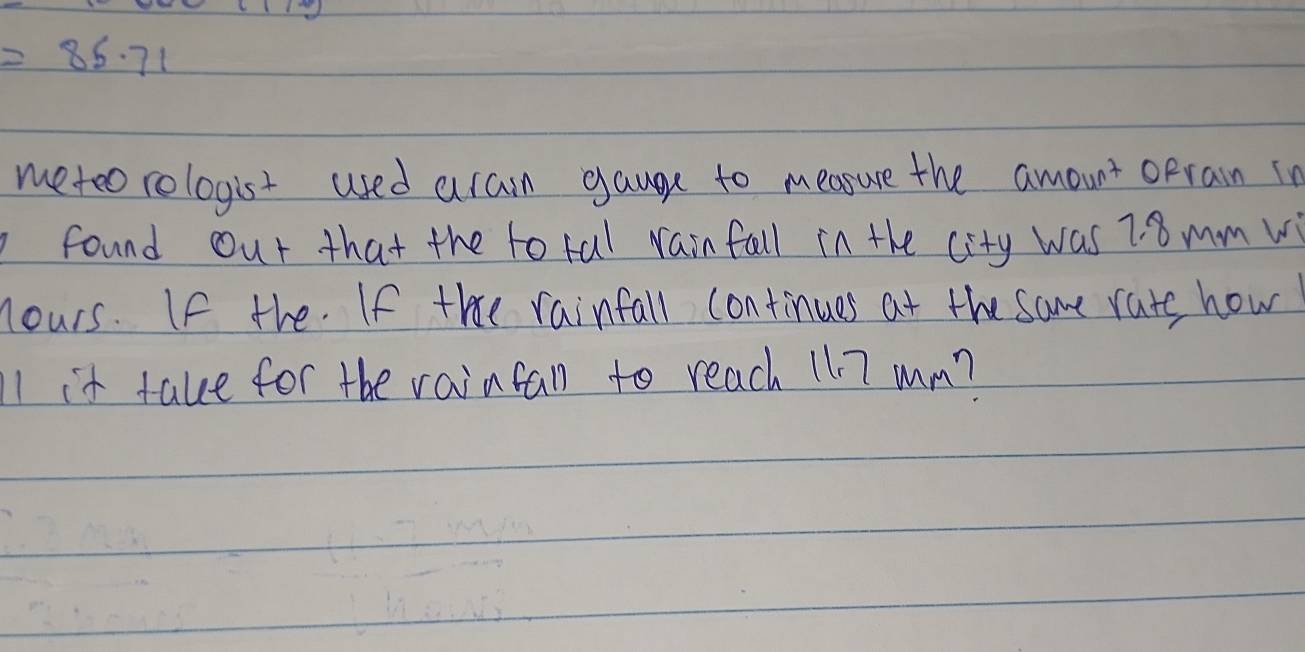 = 85.71
meteorologist used a rain gauge to measure the amount of rain in
found out that the total rainfall in the city was 7.8 mm wi
hours. If the. If the rainfall continues at the same rate, how
ll it take for the rainfall to reach 11.7 mm?